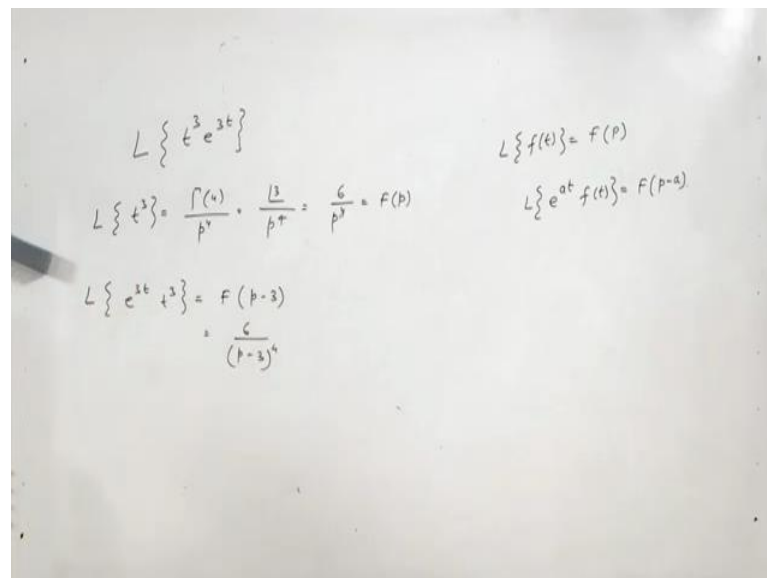 L{t³e³ᵗ}
L{t³} = Γ(4)/p⁴ = ⌊3/p⁴ = 6/p⁴ = F(p)
L{e³ᵗ t³} = F(p-3)
= 6/(p-3)⁴
L{f(t)} = F(p)
L{eᵃᵗ f(t)} = F(p-a)